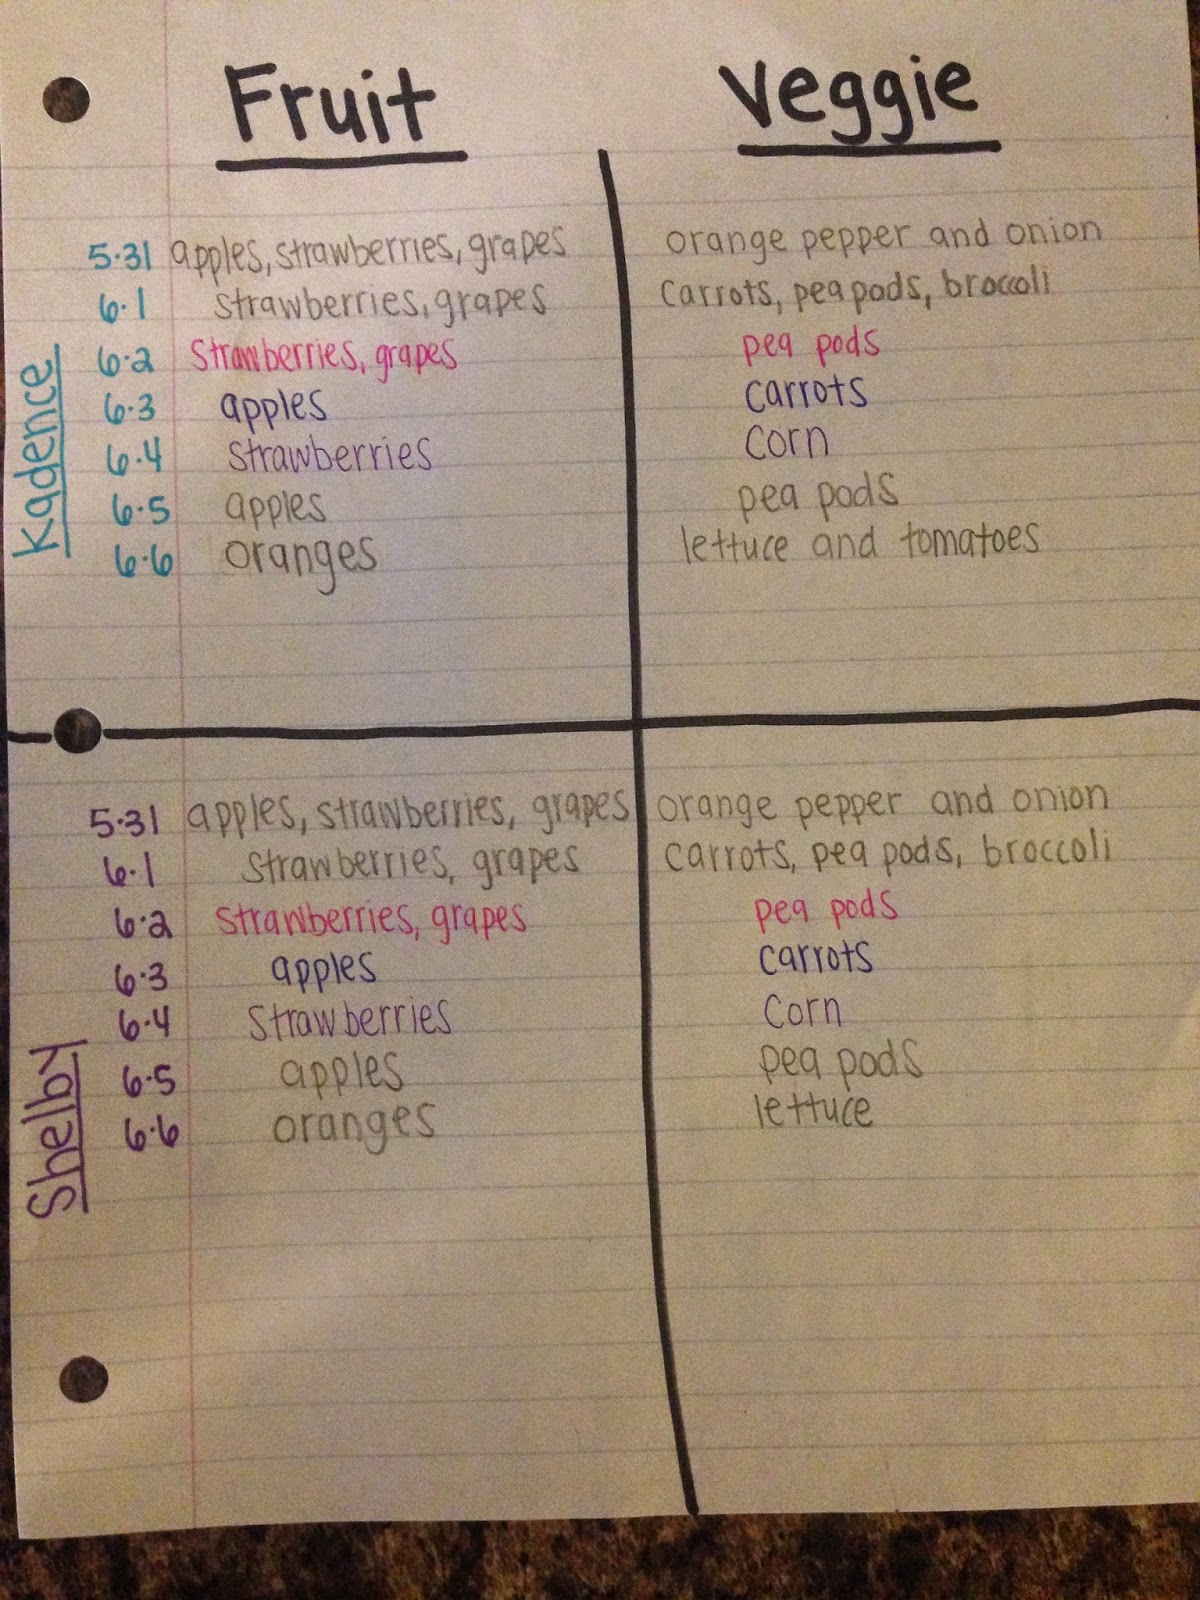 Fruit Veggie
Kadence
5.31 apples, strawberries, grapes orange pepper and onion
6.1 strawberries, grapes carrots, pea pods, broccoli
6.2 strawberries, grapes pea pods
6.3 apples carrots
6.4 strawberries corn
6.5 apples pea pods
6.6 oranges lettuce and tomatoes
Shelby
5.31 apples, strawberries, grapes orange pepper and onion
6.1 strawberries, grapes carrots, pea pods, broccoli
6.2 strawberries, grapes pea pods
6.3 apples carrots
6.4 strawberries corn
6.5 apples pea pods
6.6 oranges lettuce